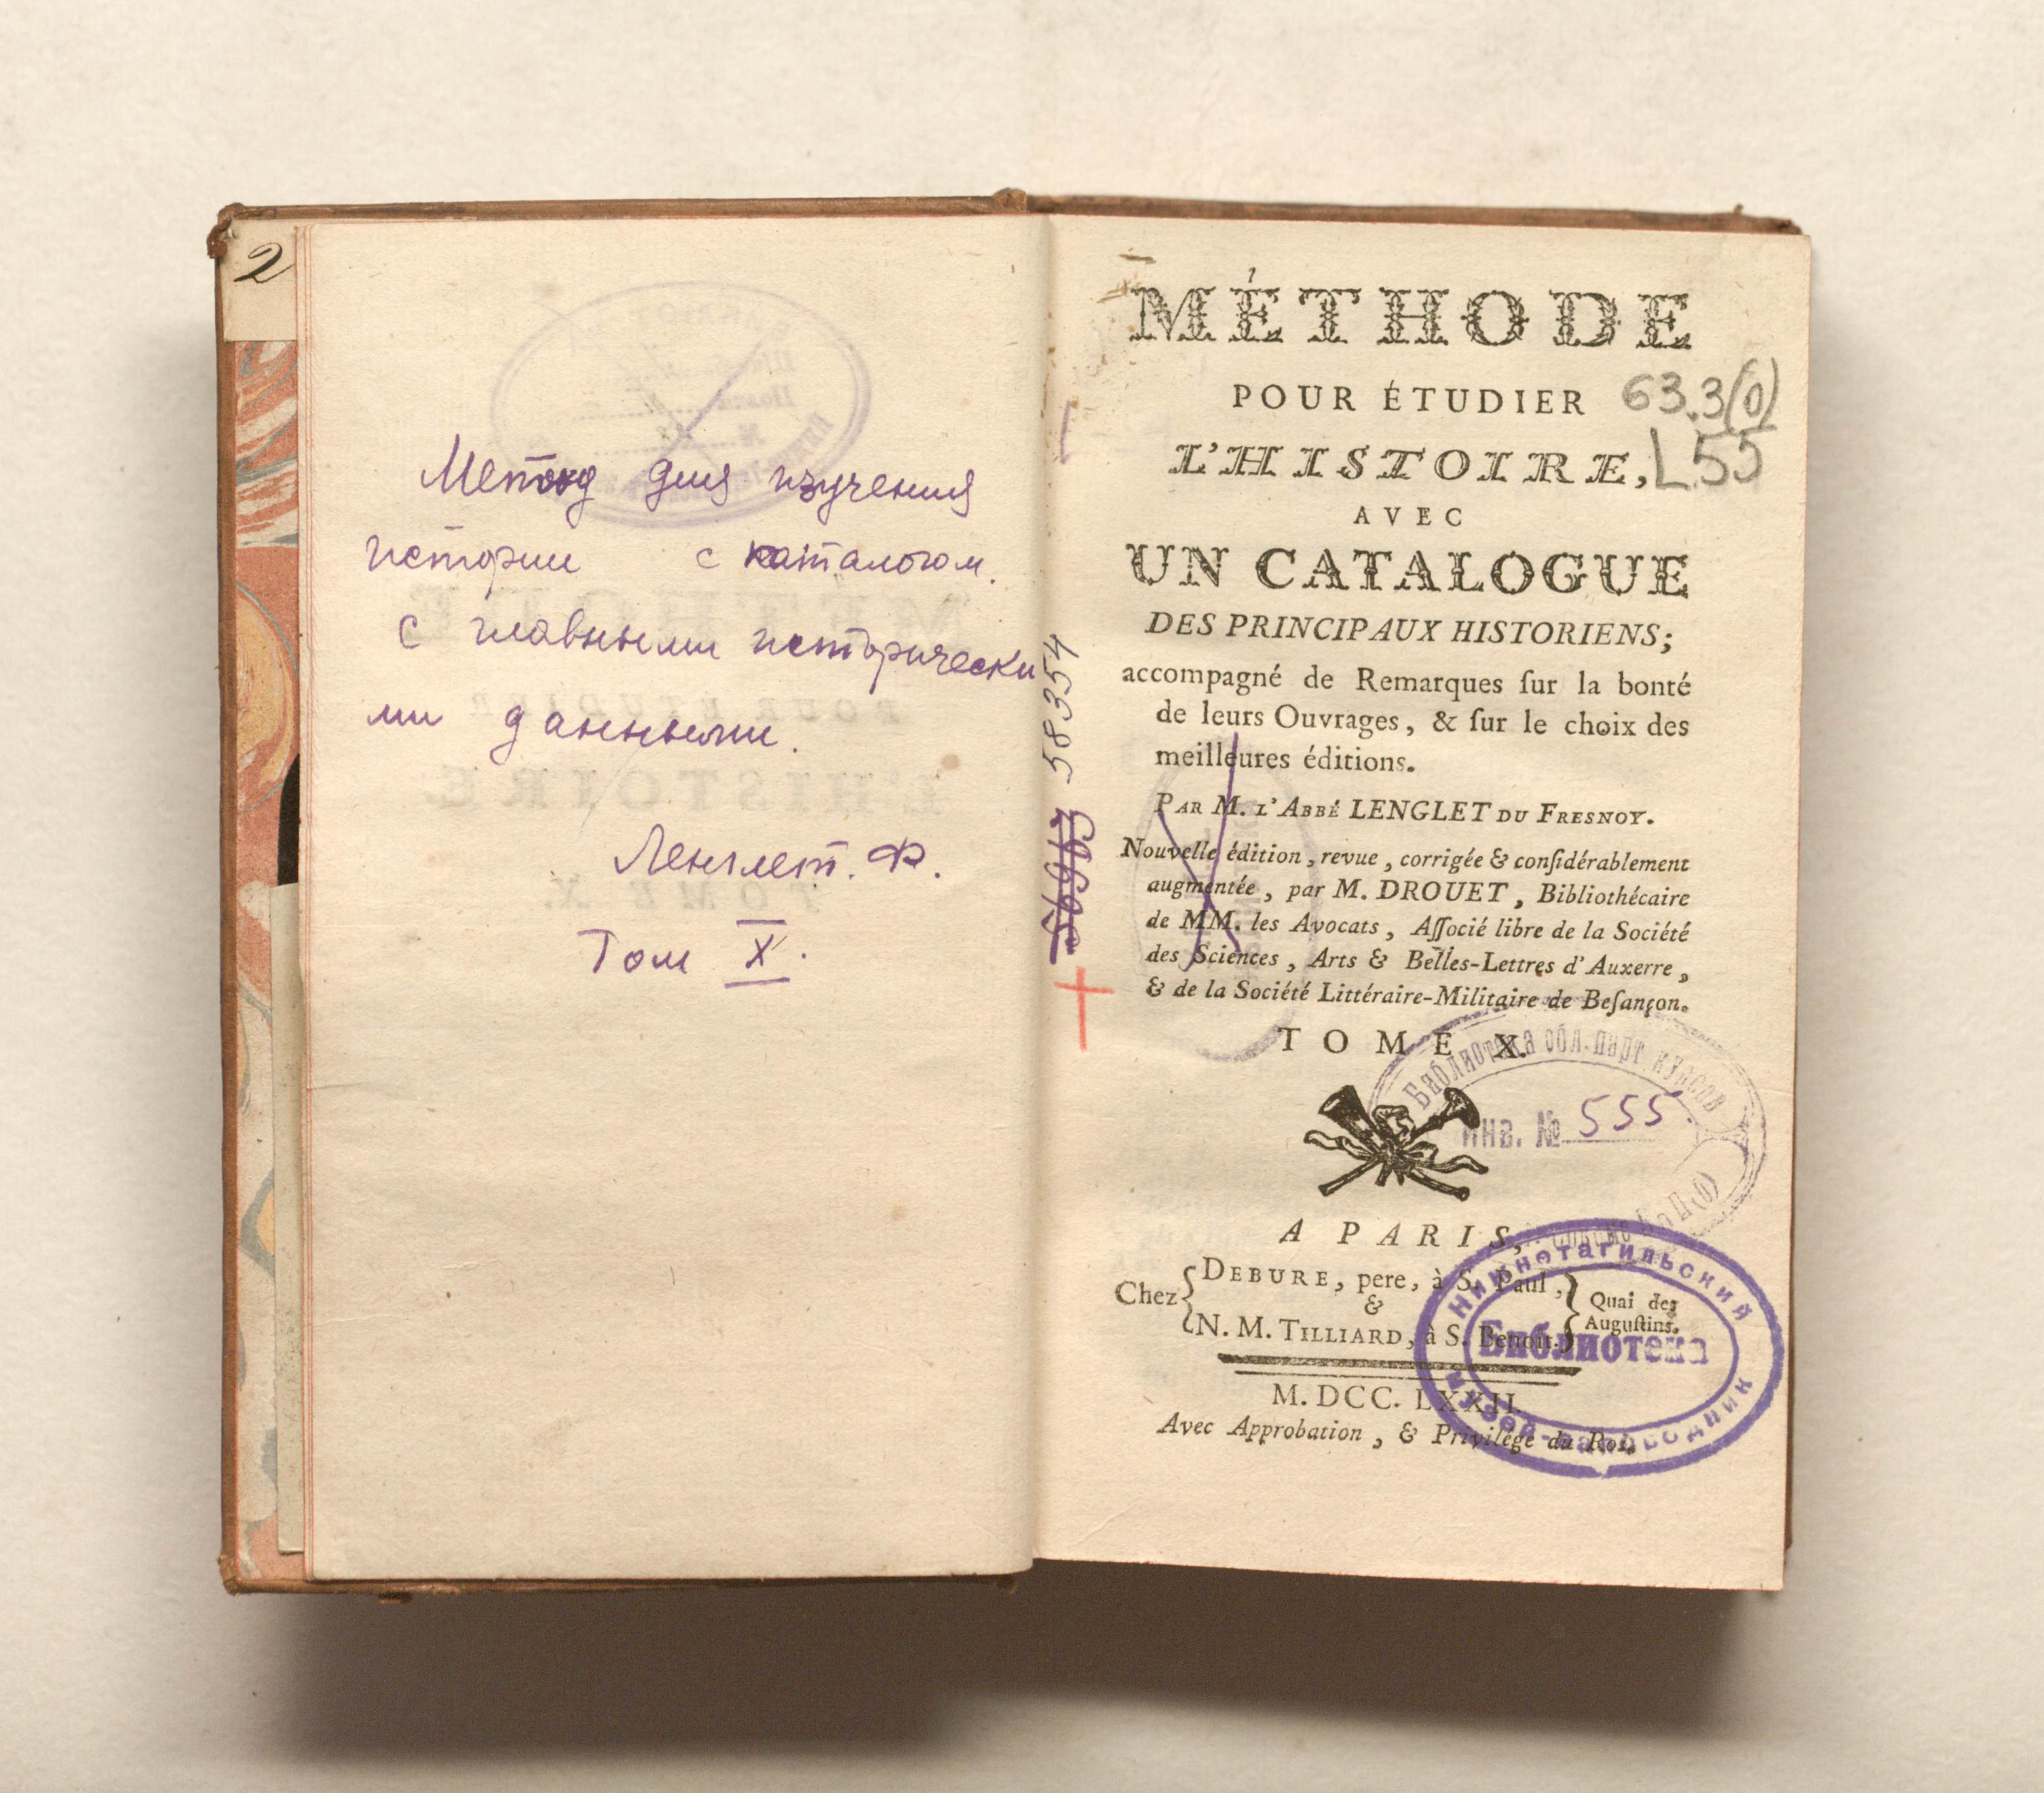 2
Метод для изучения
истории с каталогом.
с главными исторически
ми данными.
Ленглет. Ф.
Том X.
58354
MÉTHODE
POUR ÉTUDIER
63.3(0)
L'HISTOIRE,
L55
AVEC
UN CATALOGUE
DES PRINCIPAUX HISTORIENS;
accompagné de Remarques ſur la bonté
de leurs Ouvrages, & ſur le choix des
meilleures éditions.
PAR M. L'ABBÉ LENGLET DU FRESNOY.
Nouvelle édition, revue, corrigée & conſidérablement
augmentée, par M. DROUET, Bibliothécaire
de MM. les Avocats, Aſſocié libre de la Société
des Sciences, Arts & Belles-Lettres d'Auxerre,
& de la Société Littéraire-Militaire de Beſançon.
TOME X.
Библиотека обл. парт курсов
Инв. № 555
A PARIS,
Chez
DEBURE, pere, à S. Paul,
&
N. M. TILLIARD, à S. Benoît.
Quai des
Auguſtins.
Нижнотагильский
Библиотека
музей-заповедник
M. DCC. LXXII.
Avec Approbation, & Privilége du Roi.